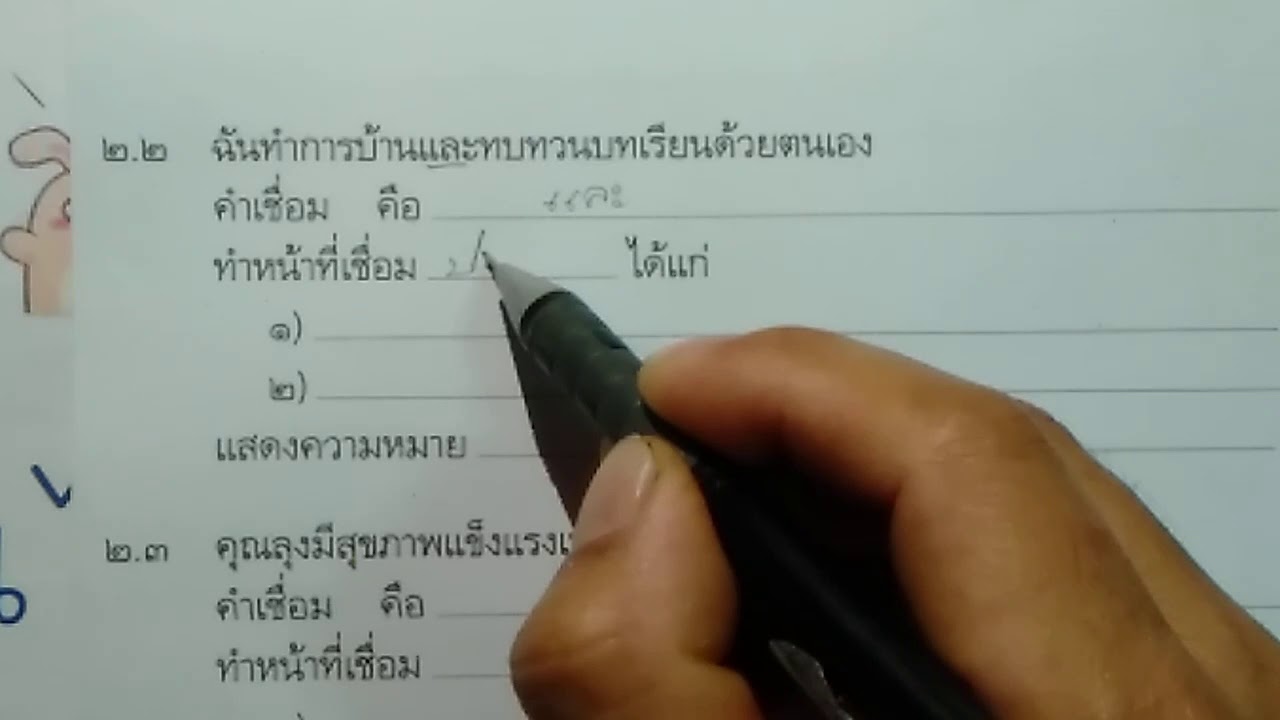 ๒.๒ ฉันทำการบ้านและทบทวนบทเรียนด้วยตนเอง
คำเชื่อม คือ และ
ทำหน้าที่เชื่อม ป ได้แก่
๑)
๒)
แสดงความหมาย
๒.๓ คุณลุงมีสุขภาพแข็งแรง
คำเชื่อม คือ
ทำหน้าที่เชื่อม